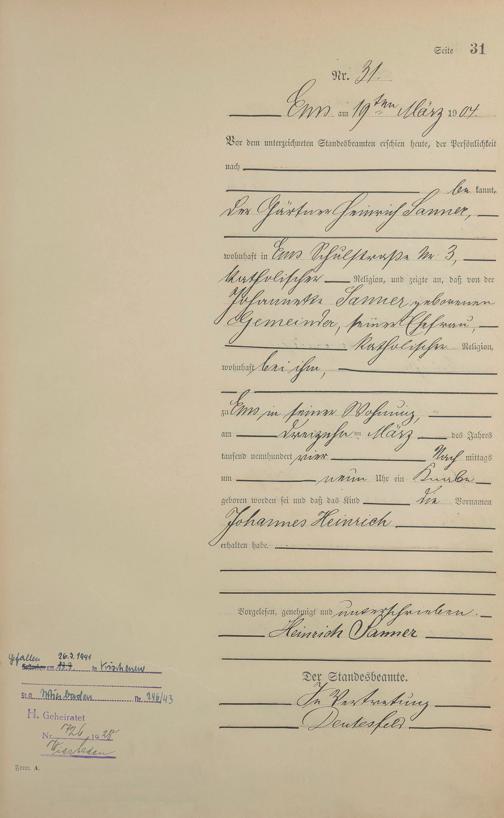 Seite 31
Nr. 31.
Ems am 19ten März 1904.
Vor dem unterzeichneten Standesbeamten erschien heute, der Persönlichkeit
nach
be kannt,
der Gärtner Heinrich Sanner,
wohnhaft in Ems Schulstraße Nr 3,
katholischer Religion, und zeigte an, daß von der
Johannette Sanner geborenen
Gemeinder, seiner Ehefrau,
katholischer Religion,
wohnhaft bei ihm,
zu Ems in seiner Wohnung,
am dreizehn ten März des Jahres
tausend neunhundert vier Nach mittags
um neun Uhr ein Knabe
geboren worden sei und daß das Kind die Vornamen
Johannes Heinrich
erhalten habe.
Vorgelesen, genehmigt und unterschrieben.
Heinrich Sanner
Der Standesbeamte.
In Vertretung
Gefallen 26.7.1941
am in
St.A. Wiesbaden Nr. 246/43
H. Geheiratet
Nr. 726 1938
Wiesbaden
Form. A.